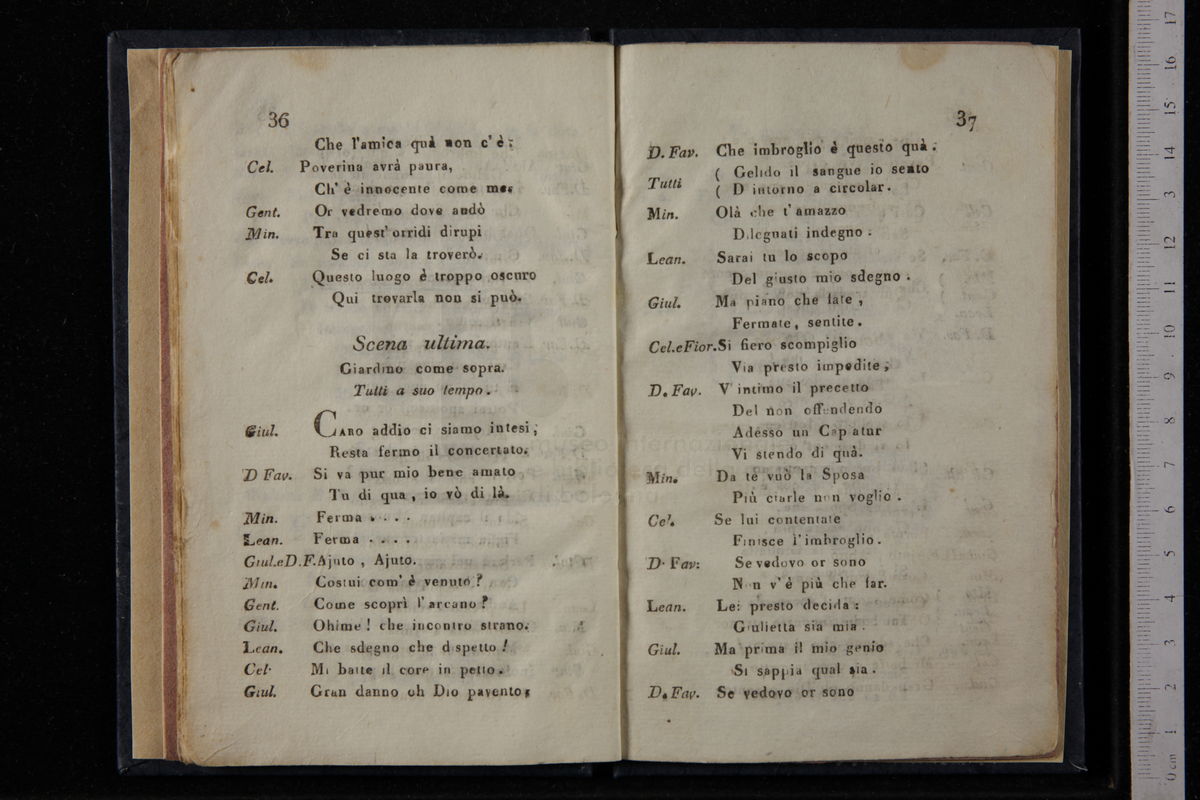 36
Che l'amica quà non c'è;
Cel. Poverina avrà paura,
Ch' è innocente come me.
Gent. Or vedremo dove andò
Min. Tra quest' orridi dirupi
Se ci sta la troverò.
Cel. Questo luogo è troppo oscuro
Qui trovarla non si può.
Scena ultima.
Giardino come sopra.
Tutti a suo tempo.
Giul. CARO addio ci siamo intesi;
Resta fermo il concertato.
D Fav. Si va pur mio bene amato
Tu di qua, io vò di là.
Min. Ferma . . . .
Lean. Ferma . . . .
Giul.eD.F. Ajuto, Ajuto.
Min. Costui com' è venuto?
Gent. Come scoprì l'arcano?
Giul. Ohime! che incontro strano.
Lean. Che sdegno che dispetto!
Cel. Mi batte il core in petto.
Giul. Gran danno oh Dio pavento,
37
D. Fav. Che imbroglio è questo quà.
Tutti ( Gelido il sangue io sento
( D intorno a circolar.
Min. Olà che t'amazzo
Dileguati indegno:
Lean. Sarai tu lo scopo
Del giusto mio sdegno.
Giul. Ma piano che fate,
Fermate, sentite.
Cel.eFior. Si fiero scompiglio
Via presto impedite;
D. Fav. V' intimo il precetto
Del non offendendo
Adesso un Capiatur
Vi stendo di quà.
Min. Da te vuò la Sposa
Più ciarle non voglio.
Cel. Se lui contentate
Finisce l'imbroglio.
D. Fav: Se vedovo or sono
Non v'è più che far.
Lean. Lei presto decida:
Giulietta sia mia.
Giul. Ma prima il mio genio
Si sappia qual sia.
D. Fav. Se vedovo or sono
0 cm 1 2 3 4 5 6 7 8 9 10 11 12 13 14 15 16 17